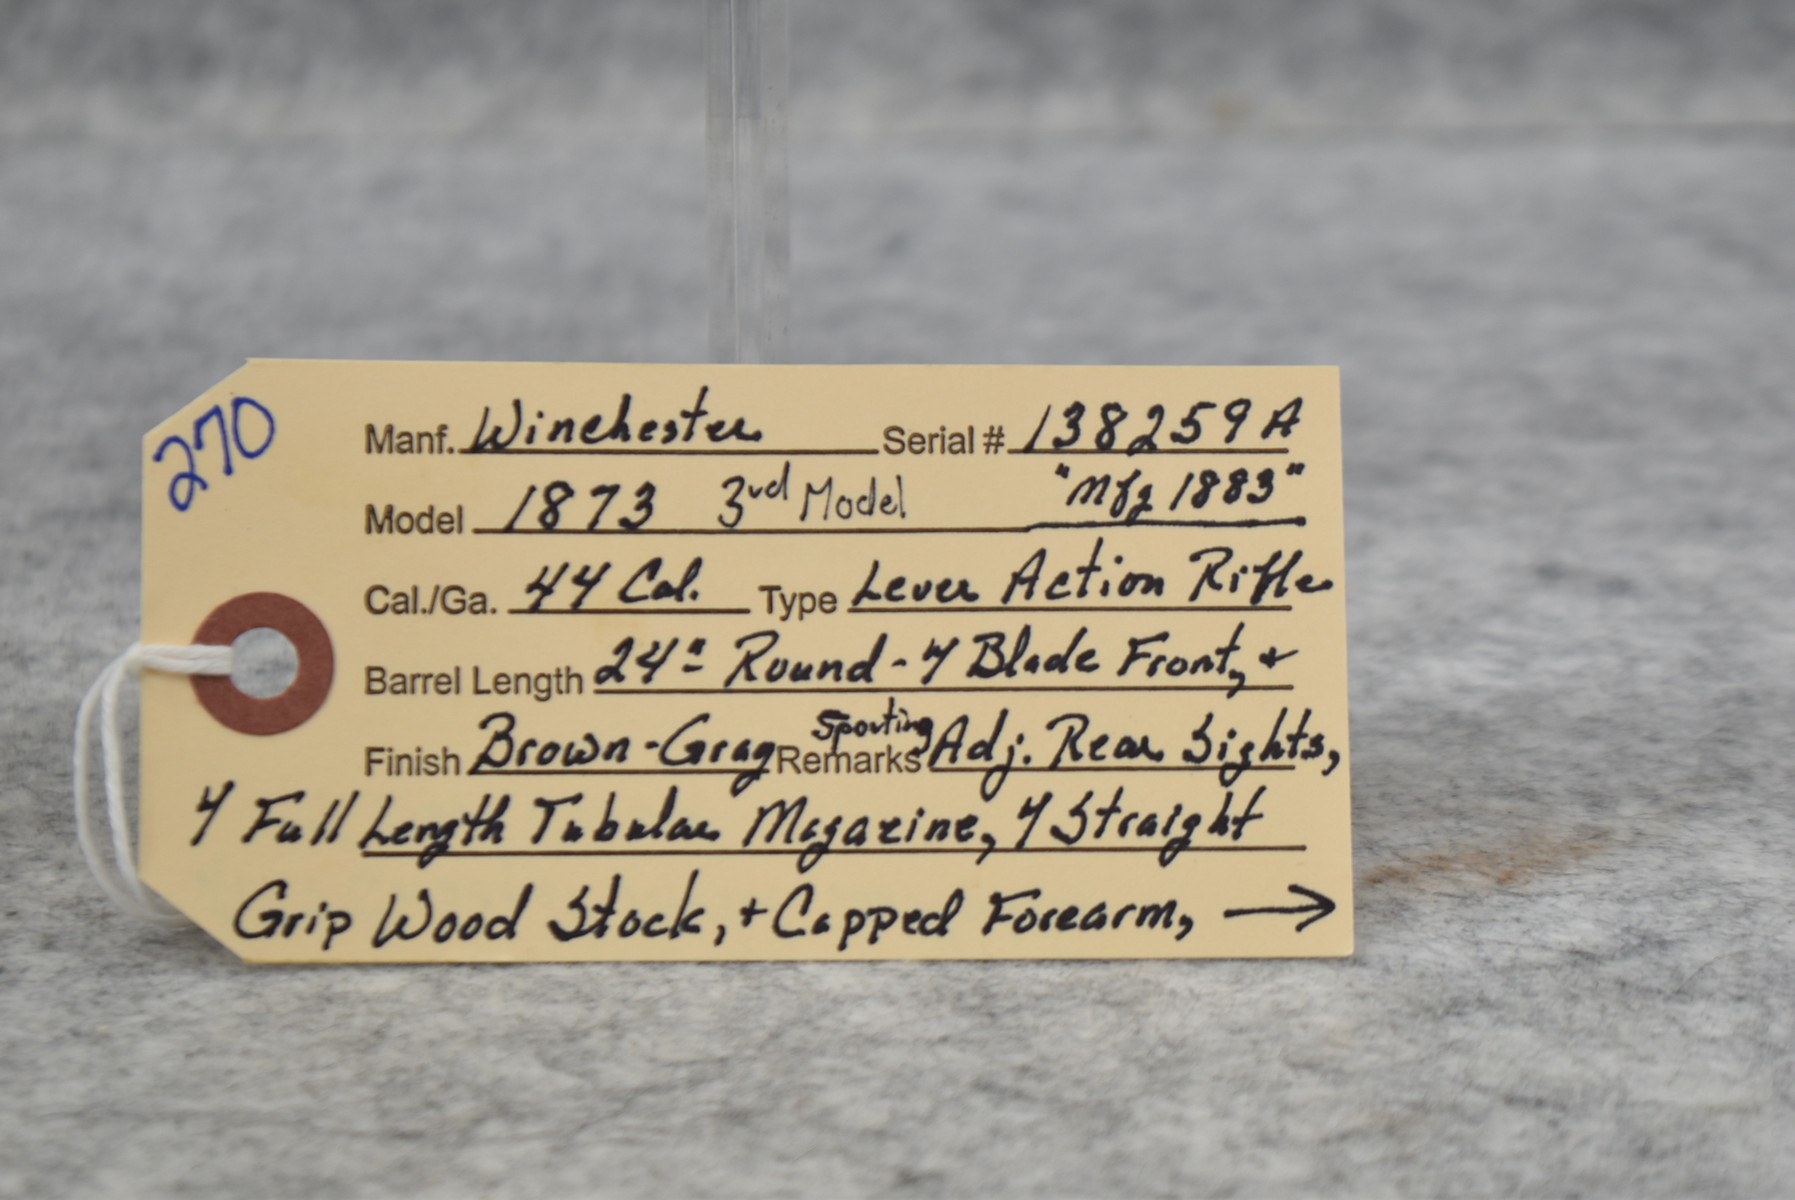 270
Manf. Winchester Serial # 138259A
Model 1873 3rd Model "Mfg 1883"
Cal./Ga. 44 Cal. Type Lever Action Rifle
Barrel Length 24" Round - Y Blade Front, +
Finish Brown-Gray Remarks Sporting Adj. Rear Sights,
Y Full Length Tubular Magazine, Y Straight
Grip Wood Stock, + Capped Forearm, →